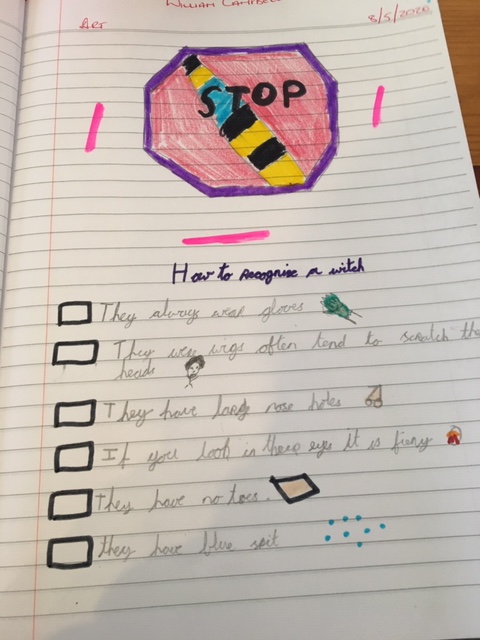 WILLIAM CAMPBELL
ART
8/5/2020
STOP
How to recognise a witch
They always wear gloves
They wear wigs often tend to scratch the
heads
They have large nose holes
If you look in there eyes it is fiery
They have no toes.
they have blue spit